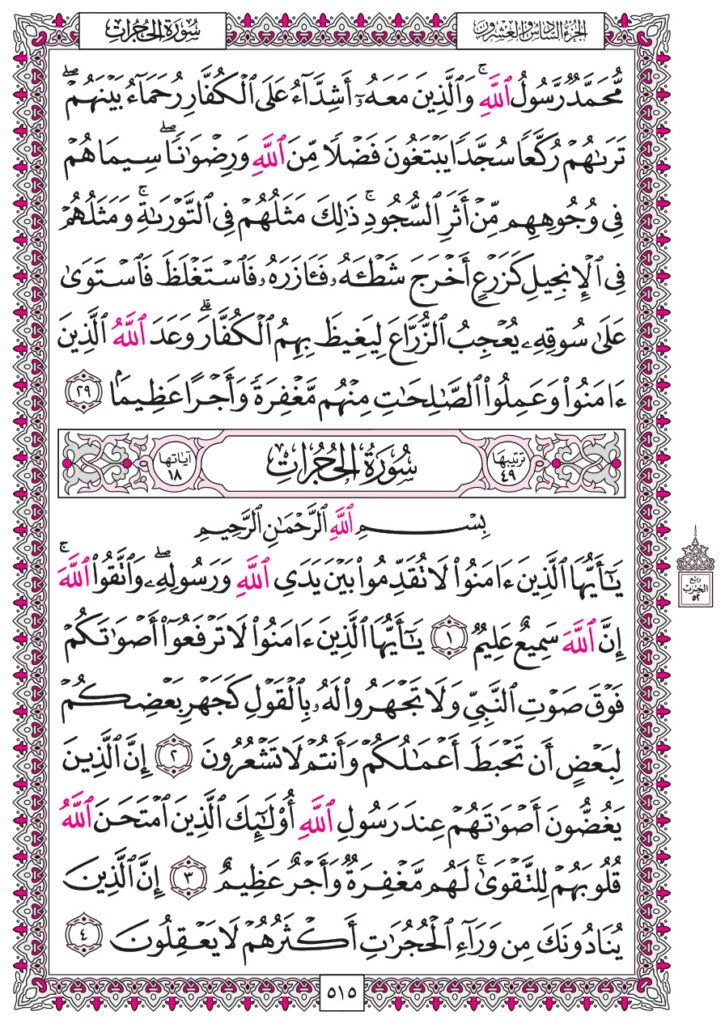 الجزء السادس والعشرون
سُورَةُ الحُجُرَاتِ
مُّحَمَّدٌ رَّسُولُ ٱللَّهِۚ وَٱلَّذِينَ مَعَهُۥٓ أَشِدَّآءُ عَلَى ٱلۡكُفَّارِ رُحَمَآءُ بَيۡنَهُمۡۖ
تَرَىٰهُمۡ رُكَّعٗا سُجَّدٗا يَبۡتَغُونَ فَضۡلٗا مِّنَ ٱللَّهِ وَرِضۡوَٰنٗاۖ سِيمَاهُمۡ
فِي وُجُوهِهِم مِّنۡ أَثَرِ ٱلسُّجُودِۚ ذَٰلِكَ مَثَلُهُمۡ فِي ٱلتَّوۡرَىٰةِۚ وَمَثَلُهُمۡ
فِي ٱلۡإِنجِيلِ كَزَرۡعٍ أَخۡرَجَ شَطۡـَٔهُۥ فَـَٔازَرَهُۥ فَٱسۡتَغۡلَظَ فَٱسۡتَوَىٰ
عَلَىٰ سُوقِهِۦ يُعۡجِبُ ٱلزُّرَّاعَ لِيَغِيظَ بِهِمُ ٱلۡكُفَّارَۗ وَعَدَ ٱللَّهُ ٱلَّذِينَ
ءَامَنُواْ وَعَمِلُواْ ٱلصَّٰلِحَٰتِ مِنۡهُم مَّغۡفِرَةٗ وَأَجۡرًا عَظِيمَۢا ٢٩
ترتيبها ٤٩
سُورَةُ الحُجُرَاتِ
آياتها ١٨
بِسۡمِ ٱللَّهِ ٱلرَّحۡمَٰنِ ٱلرَّحِيمِ
يَٰٓأَيُّهَا ٱلَّذِينَ ءَامَنُواْ لَا تُقَدِّمُواْ بَيۡنَ يَدَيِ ٱللَّهِ وَرَسُولِهِۦۖ وَٱتَّقُواْ ٱللَّهَۚ
إِنَّ ٱللَّهَ سَمِيعٌ عَلِيمٞ ١ يَٰٓأَيُّهَا ٱلَّذِينَ ءَامَنُواْ لَا تَرۡفَعُوٓاْ أَصۡوَٰتَكُمۡ
فَوۡقَ صَوۡتِ ٱلنَّبِيِّ وَلَا تَجۡهَرُواْ لَهُۥ بِٱلۡقَوۡلِ كَجَهۡرِ بَعۡضِكُمۡ
لِبَعۡضٍ أَن تَحۡبَطَ أَعۡمَٰلُكُمۡ وَأَنتُمۡ لَا تَشۡعُرُونَ ٢ إِنَّ ٱلَّذِينَ
يَغُضُّونَ أَصۡوَٰتَهُمۡ عِندَ رَسُولِ ٱللَّهِ أُوْلَٰٓئِكَ ٱلَّذِينَ ٱمۡتَحَنَ ٱللَّهُ
قُلُوبَهُمۡ لِلتَّقۡوَىٰۚ لَهُم مَّغۡفِرَةٞ وَأَجۡرٌ عَظِيمٌ ٣ إِنَّ ٱلَّذِينَ
يُنَادُونَكَ مِن وَرَآءِ ٱلۡحُجُرَٰتِ أَكۡثَرُهُمۡ لَا يَعۡقِلُونَ ٤
ربع
الحزب
٥٢
٥١٥